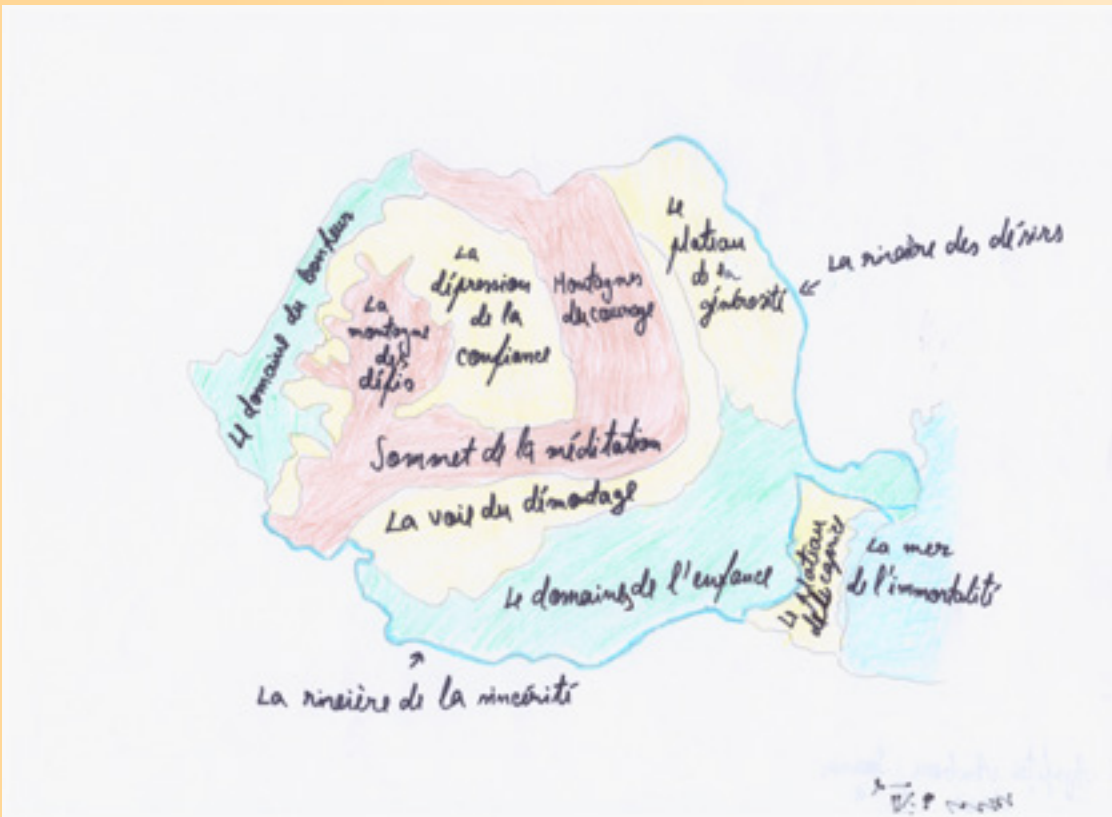 Le domaine du bonheur
La
montagne
des
défis
La
dépression
de la
confiance
Montagnes
du courage
Le
plateau
de la
générosité
La rivière des désirs
Sommet de la méditation
La voie du démontage
Le domaines de l'enfance
Le plateau
La mer
de l'immortalité
La rivière de la sincérité